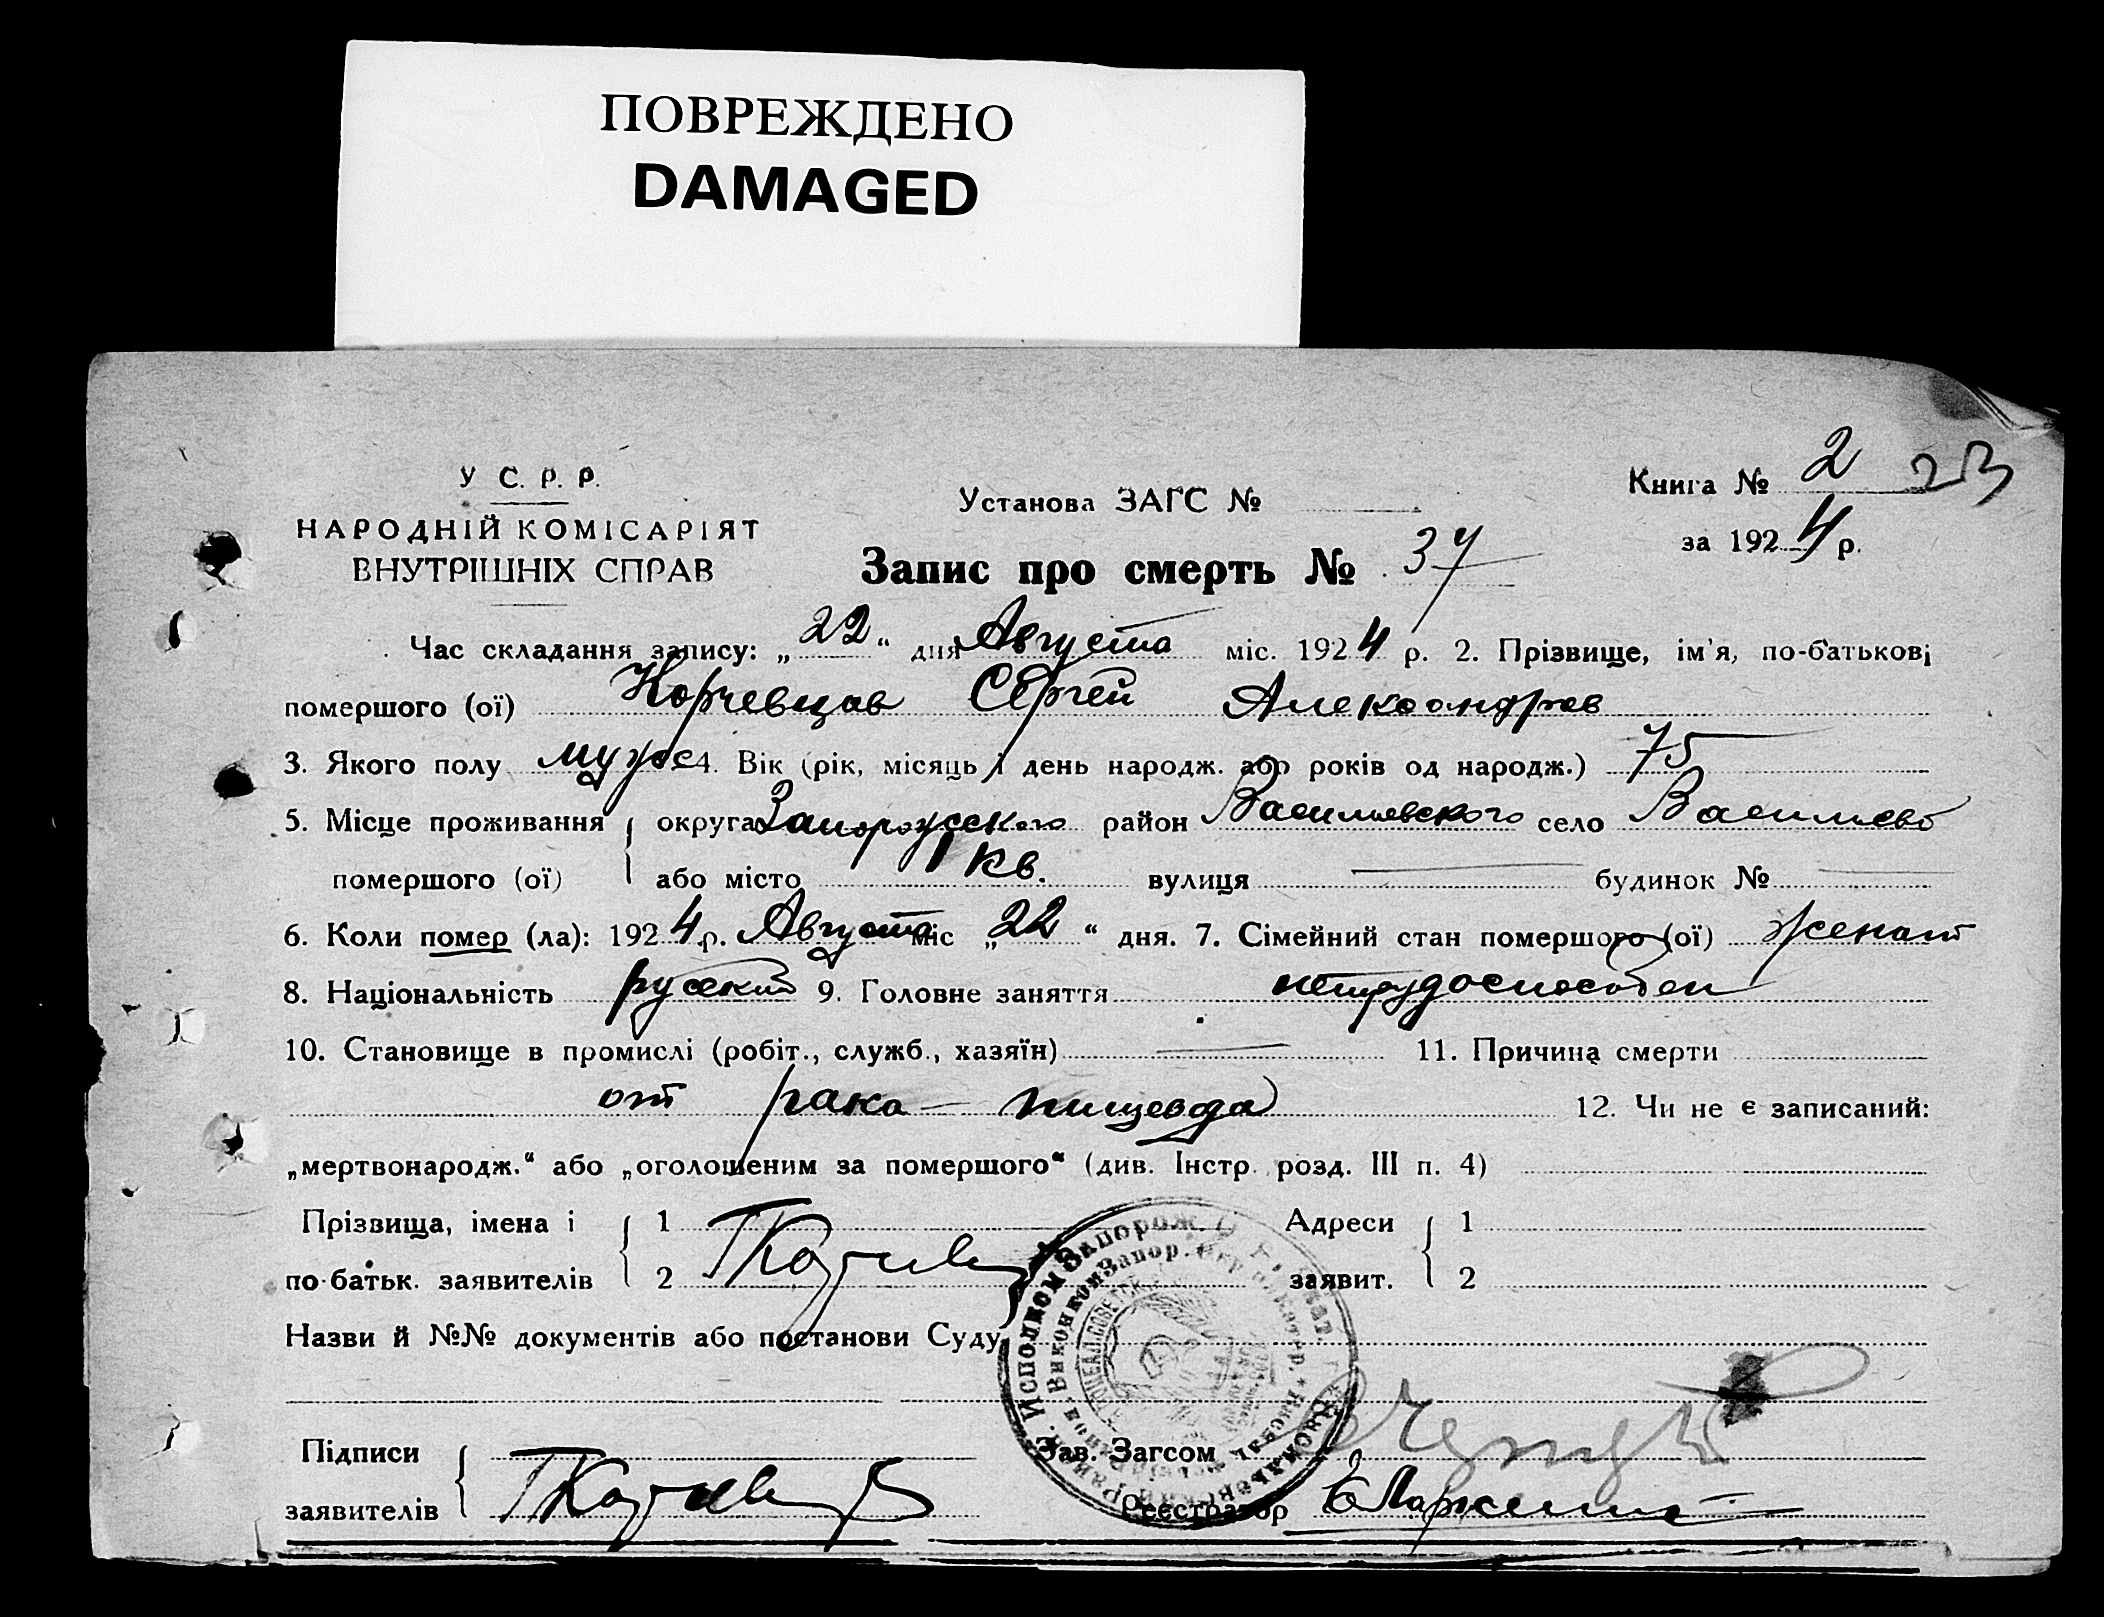 ПОВРЕЖДЕНО
DAMAGED
У С. Р. Р.
НАРОДНІЙ КОМІСАРІЯТ
ВНУТРІШНІХ СПРАВ
Установа ЗАГС №
Запис про смерть № 37
Книга № 2 23
за 1924 р.
Час складання запису: „22“ дня Августа міс. 1924 р. 2. Прізвище, ім'я, по-батькові
помершого (ої) Корчевцов Сергей Александров
3. Якого полу муж 4. Вік (рік, місяць і день народж. або років од народж.) 75
5. Місце проживання округа Запорожского район Васильевского село Васильево
помершого (ої) або місто 1 кв. вулиця — будинок № —
6. Коли помер (ла): 1924 р. Августа міс „22“ дня. 7. Сімейний стан помершого (ої) женат
8. Національність русский 9. Головне заняття нетрудоспособен
10. Становище в промислі (робіт., служб., хазяїн) — 11. Причина смерти
от рака – пищевода 12. Чи не є записаний:
„мертвонародж.“ або „оголошеним за помершого“ (див. Інстр. розд. III п. 4)
Прізвища, імена і 1 Адреси 1
по-батьк. заявителів 2 заявит. 2
Назви й №№ документів або постанови Суду
Підписи Зав. Загсом
заявителів Реєстратор